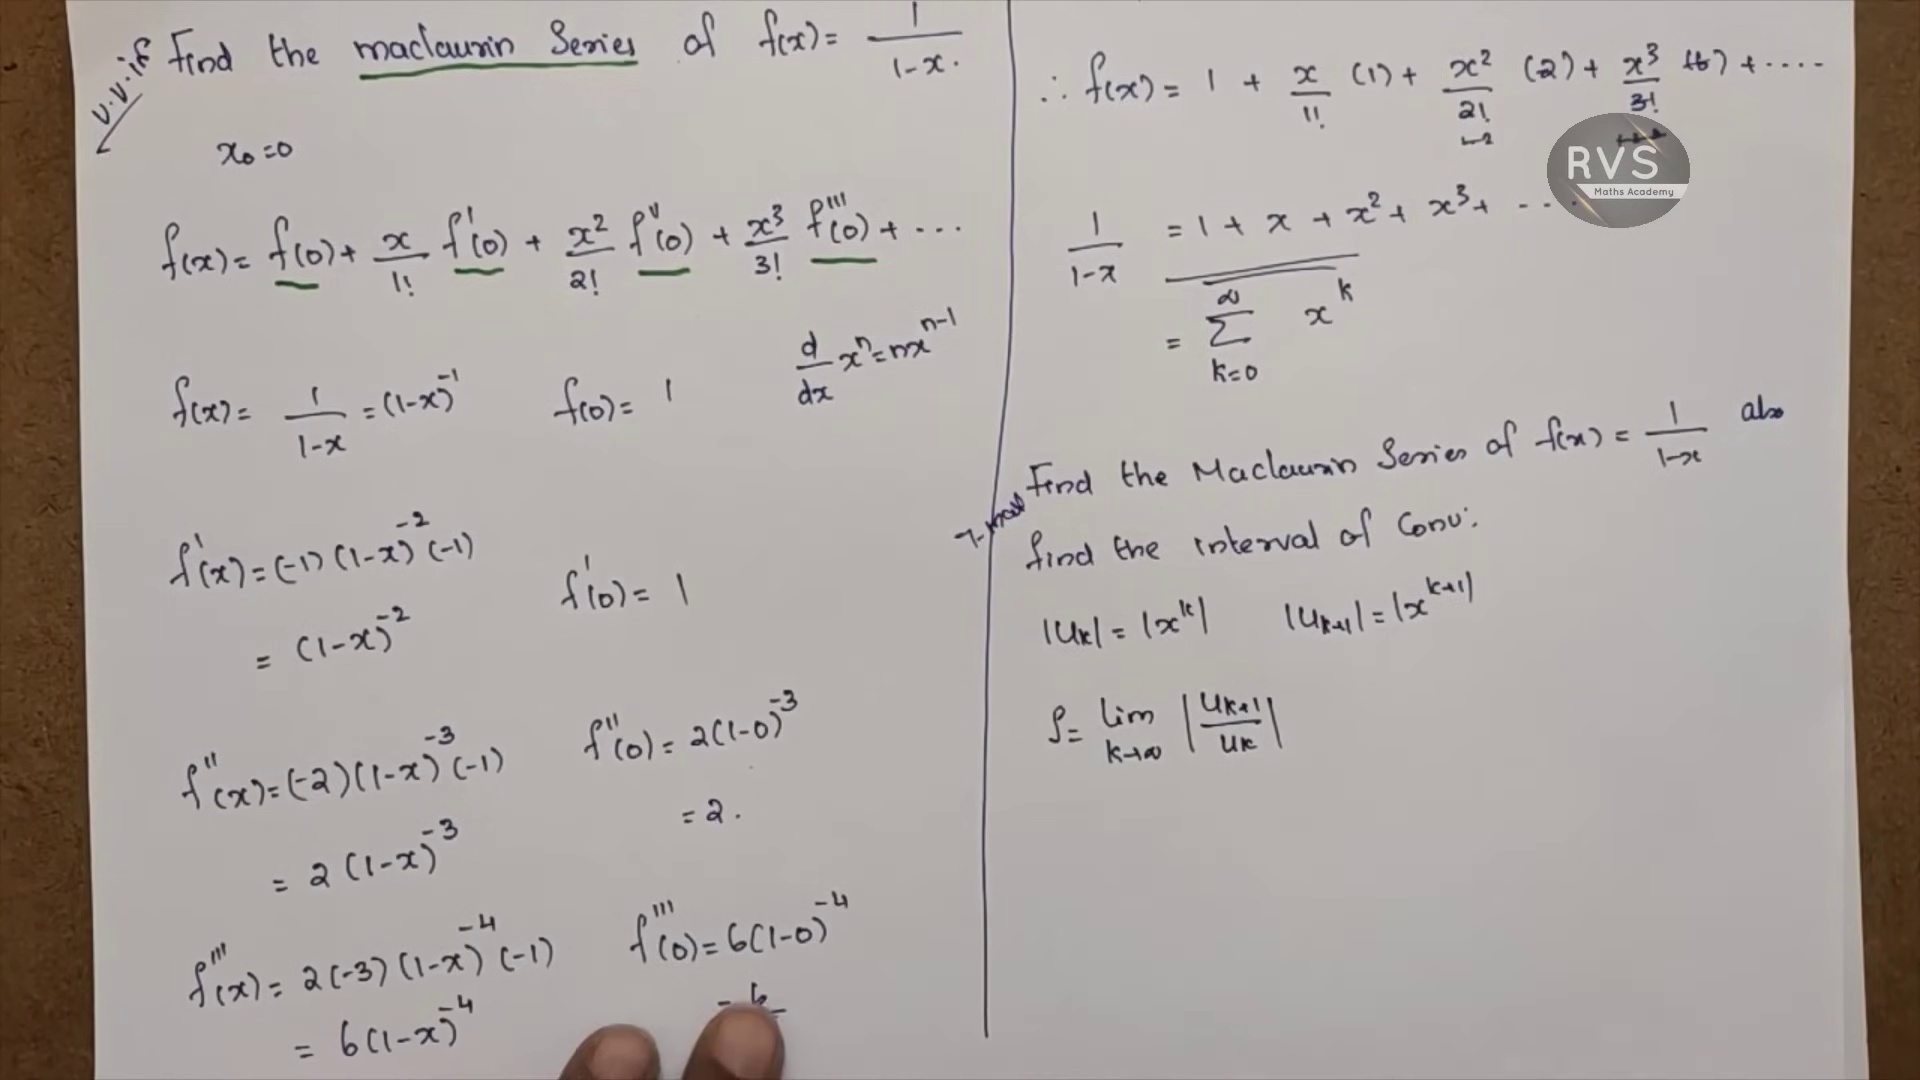 v.v.if Find the maclaurin Series of f(x) = 1/(1-x).
x₀=0
f(x) = f(0) + x/1! f'(0) + x²/2! f''(0) + x³/3! f'''(0) + ...
d/dx xⁿ = nxⁿ⁻¹
f(x) = 1/(1-x) = (1-x)⁻¹ f(0) = 1
f'(x) = (-1)(1-x)⁻²(-1) f'(0) = 1
= (1-x)⁻²
f''(x) = (-2)(1-x)⁻³(-1) f''(0) = 2(1-0)⁻³
= 2.
= 2(1-x)⁻³
f'''(x) = 2(-3)(1-x)⁻⁴(-1) f'''(0) = 6(1-0)⁻⁴
= 6
= 6(1-x)⁻⁴
∴ f(x) = 1 + x/1! (1) + x²/2! (2) + x³/3! (6) + ....
RVS
Maths Academy
1/(1-x) = 1 + x + x² + x³ + ...
= ∑_{k=0}^{∞} x^k
Find the Maclaurin Series of f(x) = 1/(1-x) also
find the interval of Conv:
|u_k| = |x^k| |u_{k+1}| = |x^{k+1}|
ρ = lim_{k→∞} |u_{k+1}/u_k|